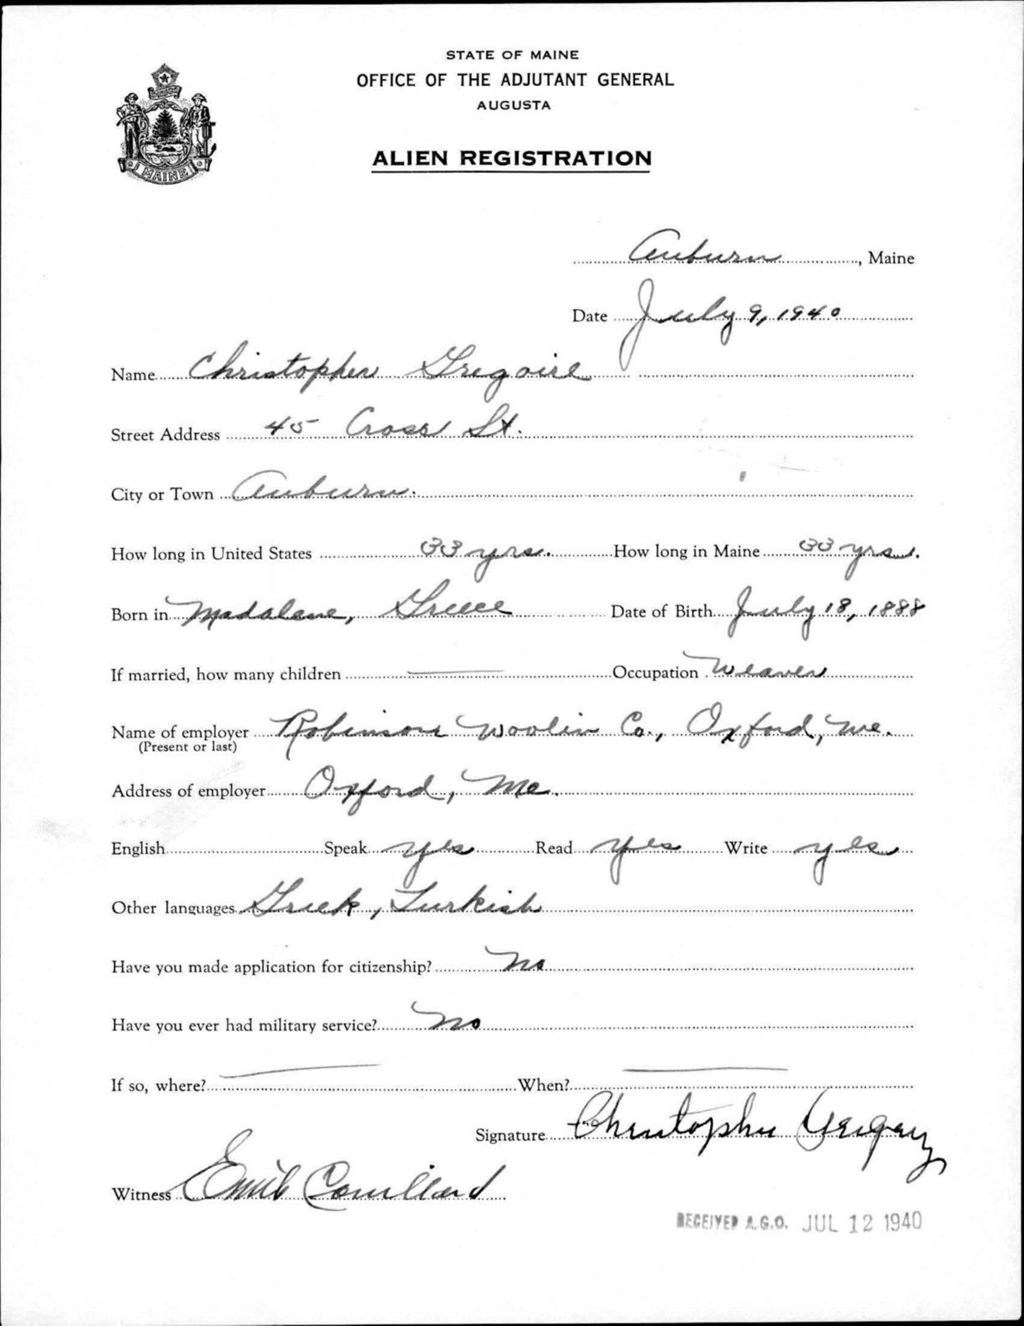 STATE OF MAINE
OFFICE OF THE ADJUTANT GENERAL
AUGUSTA
ALIEN REGISTRATION
MAINE
Auburn, Maine
Date July 9, 1940
Name Christopher Gregoire
Street Address 45 Cross St.
City or Town Auburn.
How long in United States 33 yrs. How long in Maine 33 yrs.
Born in Madalene, Greece Date of Birth July 18, 1888
If married, how many children Occupation Weaver
Name of employer Robinson Woolin Co., Oxford, Me.
(Present or last)
Address of employer Oxford, Me.
English Speak yes Read yes Write yes
Other languages Greek, Turkish
Have you made application for citizenship? No
Have you ever had military service? No
If so, where? When?
Signature Christopher Gregory
Witness Emile Couillard
RECEIVED A.G.O. JUL 12 1940